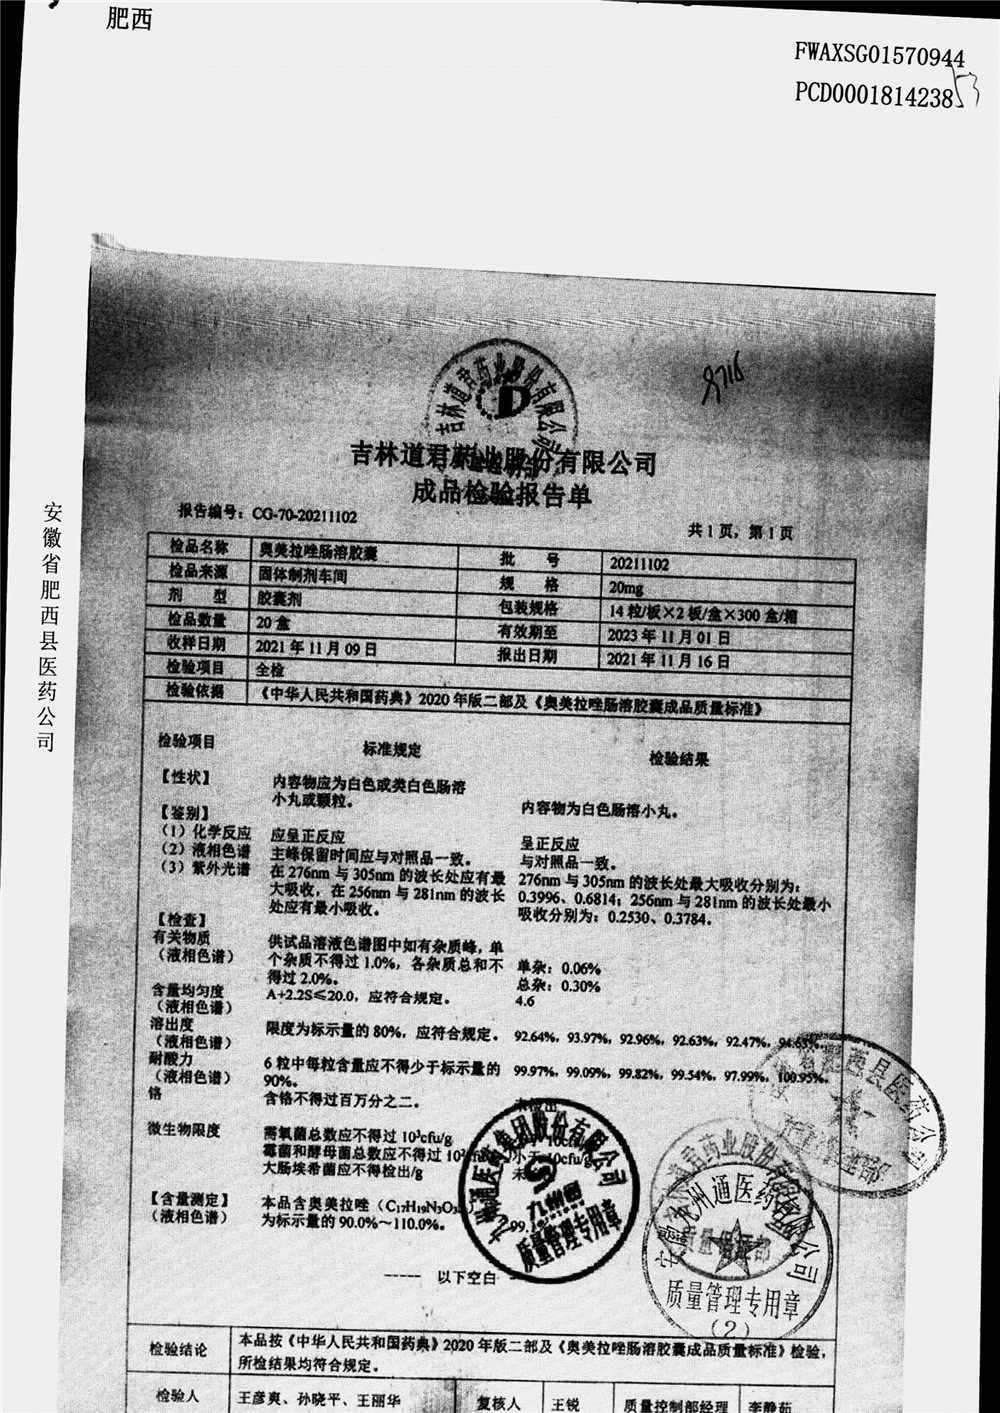 肥西
FWAXSG01570944
PCD0001814238
安徽省肥西县医药公司
吉林道君药业股份有限公司
成品检验报告单
报告编号：CG-70-20211102
共1页，第1页
检品名称 奥美拉唑肠溶胶囊 批 号 20211102
检品来源 固体制剂车间 规 格 20mg
剂 型 胶囊剂 包装规格 14粒/板×2板/盒×300盒/箱
检品数量 20盒 有效期至 2023年11月01日
收样日期 2021年11月09日 报出日期 2021年11月16日
检验项目 全检
检验依据 《中华人民共和国药典》2020年版二部及《奥美拉唑肠溶胶囊成品质量标准》
检验项目 标准规定 检验结果
【性状】 内容物应为白色或类白色肠溶
小丸或颗粒。 内容物为白色肠溶小丸。
【鉴别】
（1）化学反应 应呈正反应 呈正反应
（2）液相色谱 主峰保留时间应与对照品一致。 与对照品一致。
（3）紫外光谱 在276nm与305nm的波长处应有最 276nm与305nm的波长处最大吸收分别为：
大吸收，在256nm与281nm的波长 0.3996、0.6814；256nm与281nm的波长处最小
处应有最小吸收。 吸收分别为：0.2530、0.3784。
【检查】
有关物质 供试品溶液色谱图中如有杂质峰，单
（液相色谱） 个杂质不得过1.0%，各杂质总和不 单杂：0.06%
得过2.0%。 总杂：0.30%
含量均匀度 A+2.2S≤20.0，应符合规定。 4.6
（液相色谱）
溶出度 限度为标示量的80%，应符合规定。 92.64%，93.97%，92.96%，92.63%，92.47%，94.63%。
（液相色谱）
耐酸力 6粒中每粒含量应不得少于标示量的 99.97%，99.09%，99.82%，99.54%，97.99%，100.95%。
（液相色谱） 90%。
铬 含铬不得过百万分之二。 未检出
微生物限度 需氧菌总数应不得过10³cfu/g 10cfu/g
霉菌和酵母菌总数应不得过10²cfu/g 小于10cfu/g
大肠埃希菌应不得检出/g 未
【含量测定】 本品含奥美拉唑（C₁₇H₁₉N₃O₃S）
（液相色谱） 为标示量的90.0%～110.0%。 99.1
----- 以下空白 -
检验结论 本品按《中华人民共和国药典》2020年版二部及《奥美拉唑肠溶胶囊成品质量标准》检验，
所检结果均符合规定。
检验人 王彦爽、孙晓平、王丽华 复核人 王锐 质量控制部经理 李静茹
吉林道君药业股份有限公司
九州通医药集团股份有限公司
九州通
质量管理专用章
安徽九州通医药有限公司
质量管理专用章
（2）